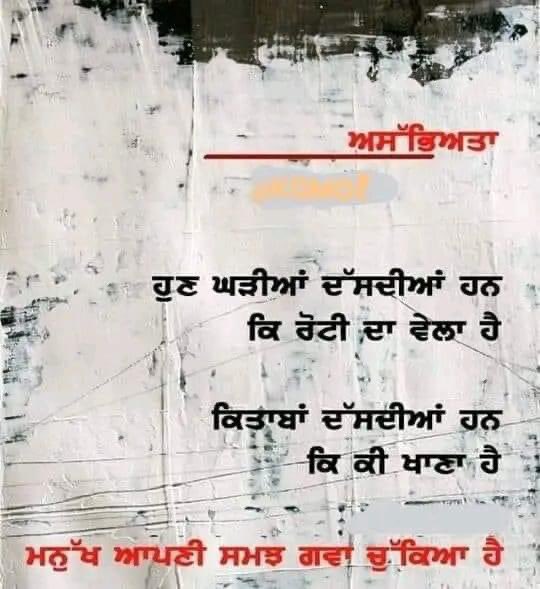 ਅਸੱਭਿਅਤਾ
ਹੁਣ ਘੜੀਆਂ ਦੱਸਦੀਆਂ ਹਨ
ਕਿ ਰੋਟੀ ਦਾ ਵੇਲਾ ਹੈ
ਕਿਤਾਬਾਂ ਦੱਸਦੀਆਂ ਹਨ
ਕਿ ਕੀ ਖਾਣਾ ਹੈ
ਮਨੁੱਖ ਆਪਣੀ ਸਮਝ ਗਵਾ ਚੁੱਕਿਆ ਹੈ